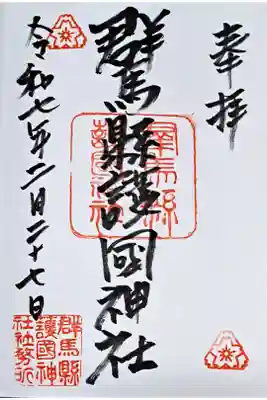 奉拝
群馬縣護國神社
令和七年二月二十七日
群馬縣
護國神
社社務所